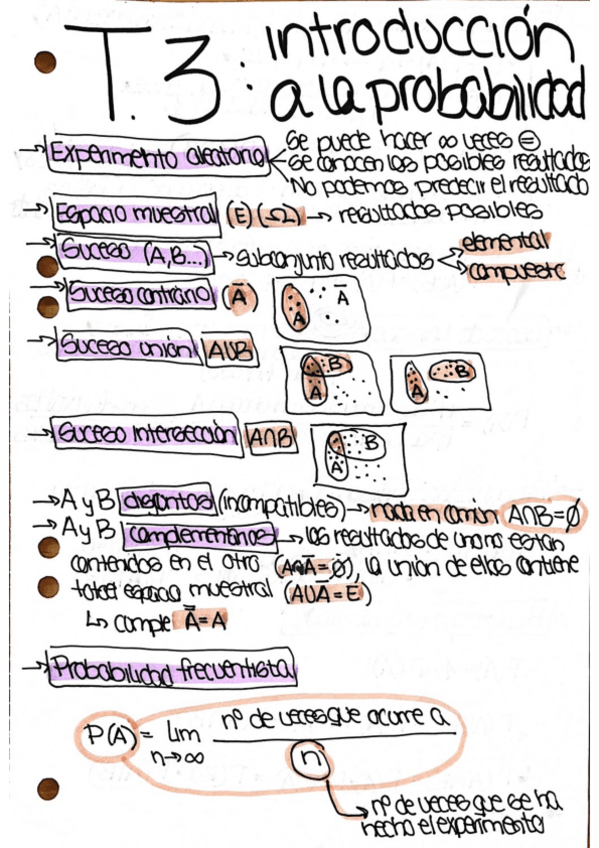 T.3: introducción
a la probabilidad
→ Experimento aleatorio
Se puede hacer ∞ veces ⊜
Se conocen los posibles resultados
No podemos predecir el resultado
→ Espacio muestral (E) (Ω) → resultados posibles
→ Suceso (A,B...) → subconjunto resultados
elemental
compuesto
→ Suceso contrario (Ā)
A Ā
→ Suceso unión A∪B
B
A
A B
→ Suceso intersección A∩B
A B
→ A y B disjuntos (incompatibles) → nada en común A∩B=∅
→ A y B complementarios → los resultados de uno no están
contenidos en el otro (A∩Ā=∅), la unión de ellos contiene
total espacio muestral (A∪Ā=E)
↳ cumple A̿=A
→ Probabilidad frecuentista
P(A) = lim n→∞ nº de veces que ocurre a / n
→ nº de veces que se ha
hecho el experimento